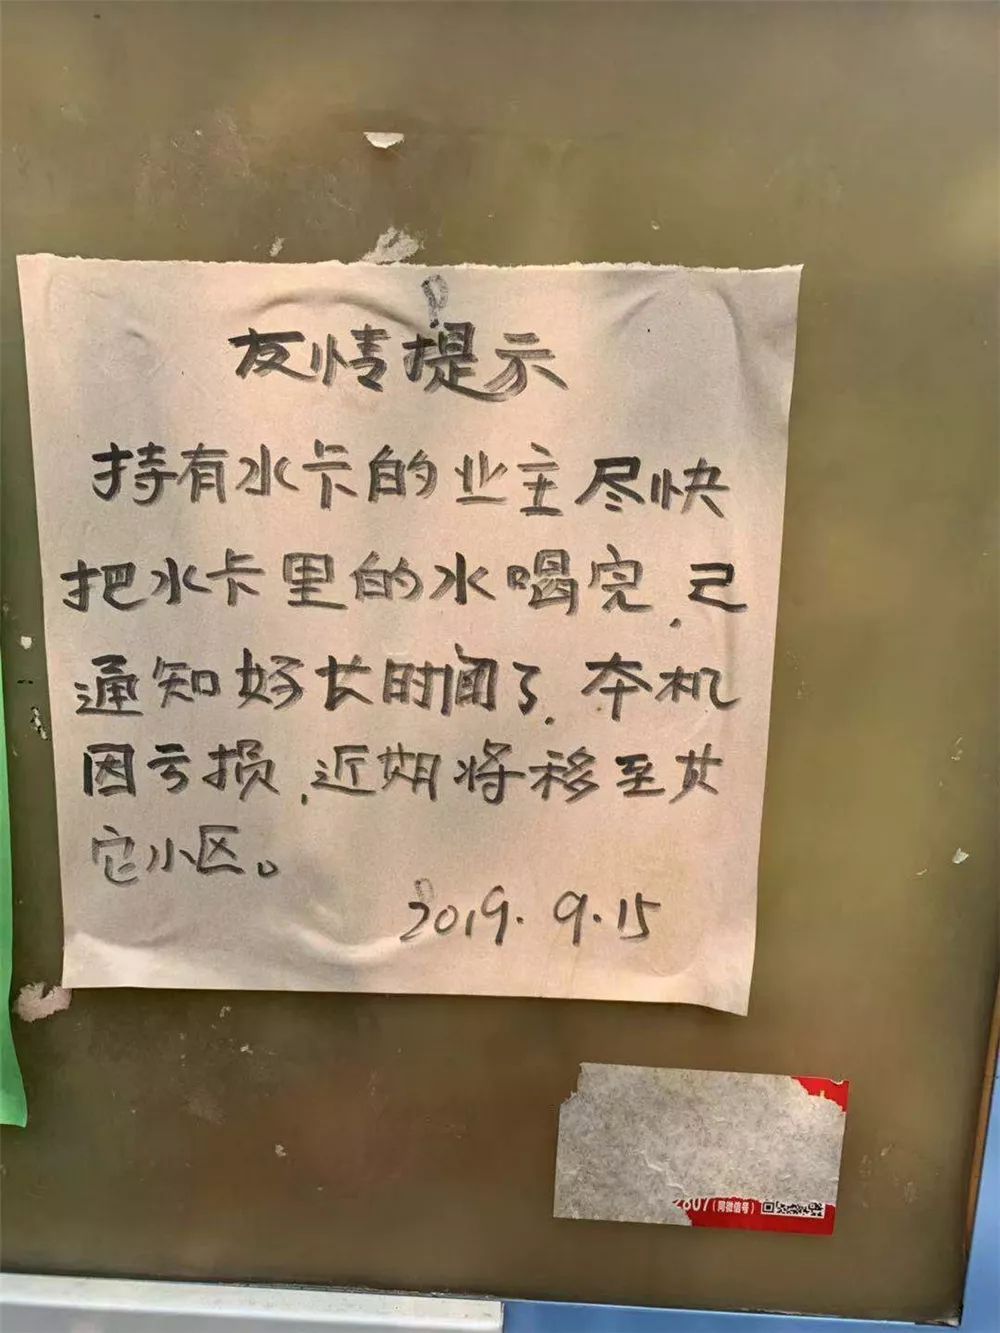 友情提示
持有水卡的业主尽快
把水卡里的水喝完,已
通知好长时间了,本机
因亏损,近期将移至其
它小区。
2019.9.15
2807(同微信号)